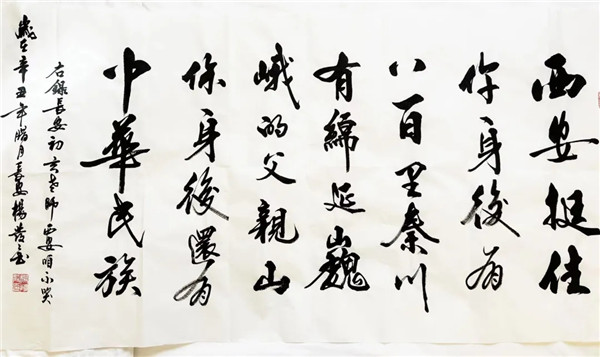 西安挺住
你身後有
八百里秦川
有綿延巍
峨的父親山
你身後還有
中華民族
右錄長安初老師西安不哭
歲在辛丑年臘月長安楊